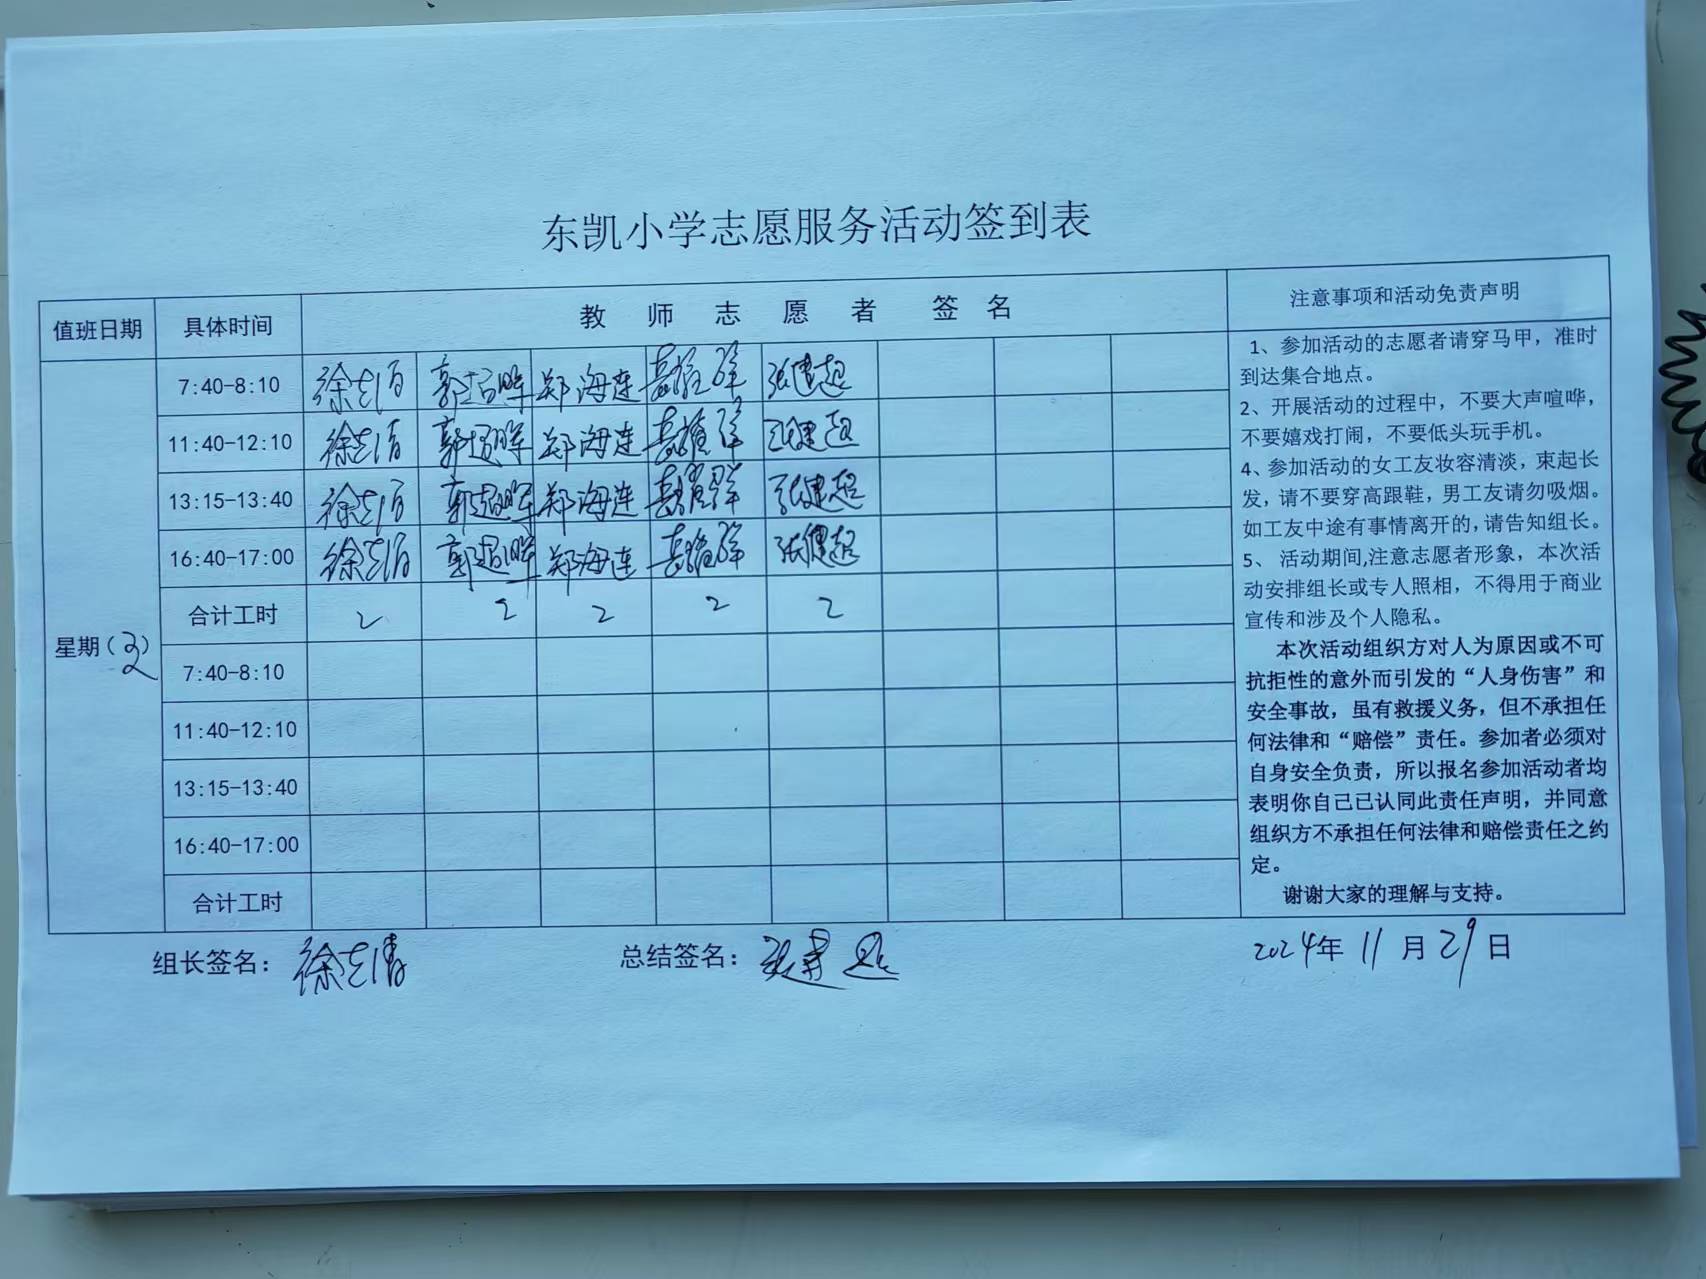 东凯小学志愿服务活动签到表
值班日期 具体时间 教师志愿者 签名 注意事项和活动免责声明
7:40-8:10 徐志清 郭超晖 郑海连 张建超
11:40-12:10 徐志清 郭超晖 郑海连 张建超
13:15-13:40 徐志清 郭超晖 郑海连 张建超
16:40-17:00 徐志清 郭超晖 郑海连 张健超
合计工时 2 2 2 2 2
星期( )
7:40-8:10
11:40-12:10
13:15-13:40
16:40-17:00
合计工时
1、参加活动的志愿者请穿马甲，准时
到达集合地点。
2、开展活动的过程中，不要大声喧哗，
不要嬉戏打闹，不要低头玩手机。
4、参加活动的女工友妆容清淡，束起长
发，请不要穿高跟鞋，男工友请勿吸烟。
如工友中途有事情离开的,请告知组长。
5、 活动期间,注意志愿者形象，本次活
动安排组长或专人照相，不得用于商业
宣传和涉及个人隐私。
本次活动组织方对人为原因或不可
抗拒性的意外而引发的“人身伤害”和
安全事故，虽有救援义务，但不承担任
何法律和“赔偿”责任。参加者必须对
自身安全负责，所以报名参加活动者均
表明你自己已认同此责任声明，并同意
组织方不承担任何法律和赔偿责任之约
定。
谢谢大家的理解与支持。
组长签名：徐志清 总结签名：张建超 2024年 11 月 29 日